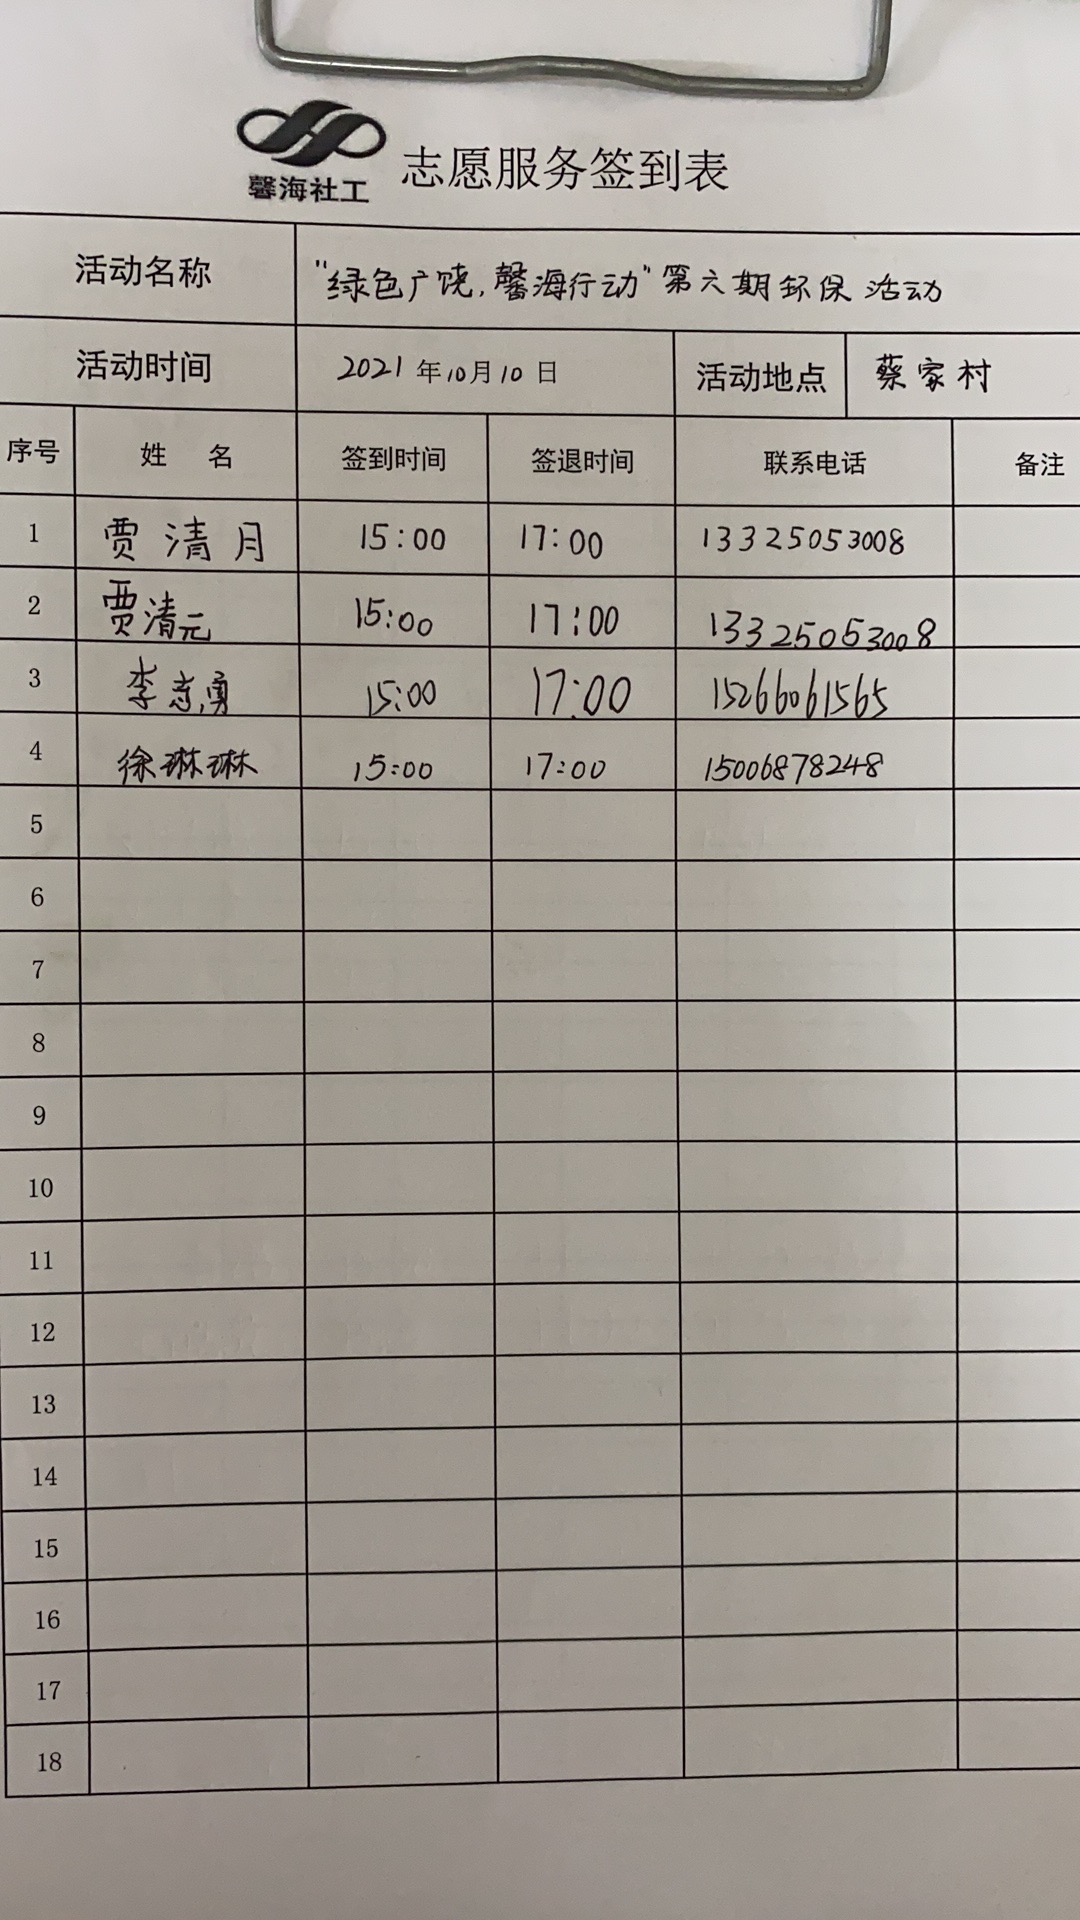 馨海社工
志愿服务签到表
活动名称 "绿色广饶,馨海行动"第六期环保活动
活动时间 2021年10月10日 活动地点 蔡家村
序号 姓 名 签到时间 签退时间 联系电话 备注
1 贾清月 15:00 17:00 13325053008
2 贾清元 15:00 17:00 13325053008
3 李 勇 15:00 17:00 15266061565
4 徐琳琳 15:00 17:00 15006878248
5
6
7
8
9
10
11
12
13
14
15
16
17
18